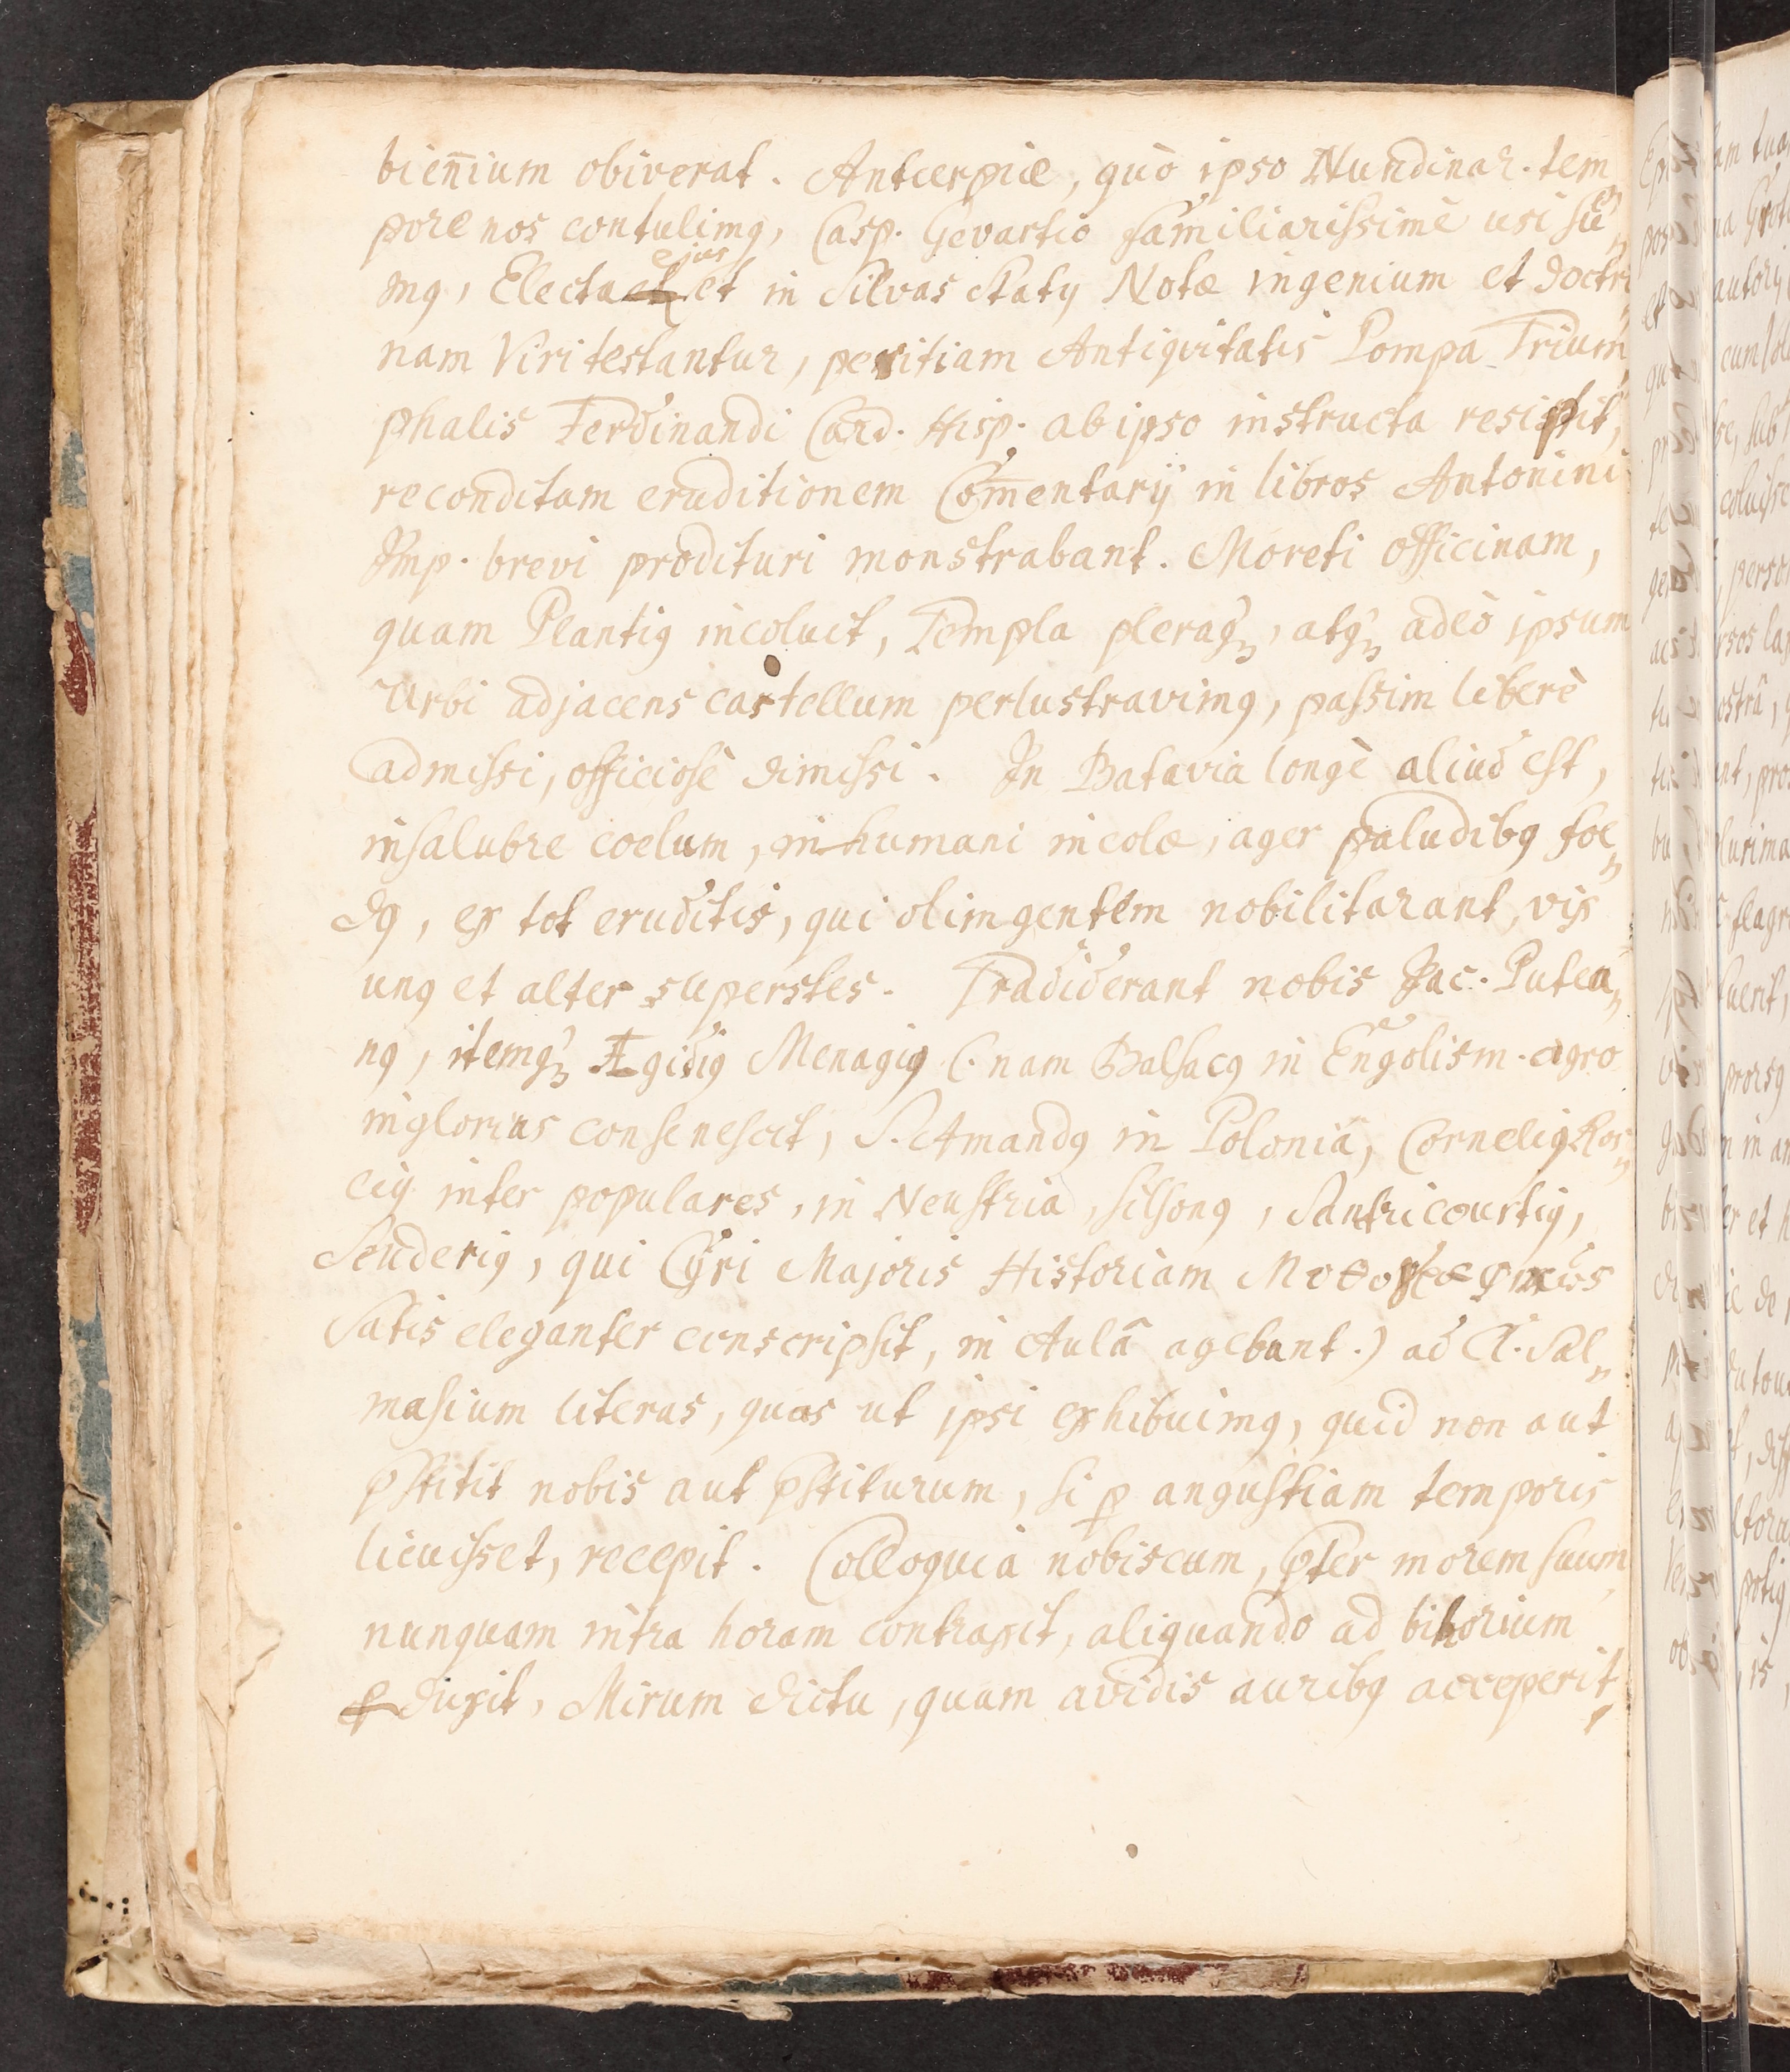 bien̄ium obiverat. Antuerpiæ, quò ipso Nundinar. tem
pore nos contulimꝰ, Casp. Gevartio familiarissimè usi su„
mꝰ, Electa ejus et in Silvas Statij Notæ ingenium et doctri„
nam Viri testantur, peritiam Antiqvitatis Pompa Trium„
phalis Ferdinandi Card. Hisp. ab ipso instructa
reconditam eruditionem Com̄entarij in libros Antonini
Imp. brevi prodituri monstrabant. Moreti officinam,
quam Plantiꝰ incoluit, Templa pleraqꝫ, atqꝫ adeò ipsum
Urbi adjacens castellum perlustravimꝰ, passim liberè
admissi, officiosè dimissi. In Batavia longè aliud est,
insalubre coelum, inhumani incolæ, ager paludibꝰ foe„
dꝰ, ex tot eruditis, qui olim gentem nobilitarant, vix
unꝰ et alter superstes. Tradiderant nobis Jac. Putea„
nꝰ, itemqꝫ Ægidiꝰ Menagiꝰ (nam Balsacꝰ in Engolism. agro
inglorius consenescit, S. Amandꝰ in Poloniâ, Corneliꝰ Ros„
ciꝰ inter populares, in Neustria, Silsonꝰ, Santricourtiꝰ,
Scuderiꝰ, qui Cÿri Majoris Historiam
satis eleganter conscripsit, in Aulâ agebant.) ad Cl. Sal„
masium literas, quas ut ipsi exhibuimꝰ, quid non aut
p̄stitit nobis aut p̄stiturum, si ꝑ angustiam temporis
licuisset, recepit. Colloquia nobiscum, p̄ter morem suum
nunquam intra horam contraxit, aliquando ad bihorium
ꝓduxit, Mirum dictu, quam avidis auribꝰ acceperit,